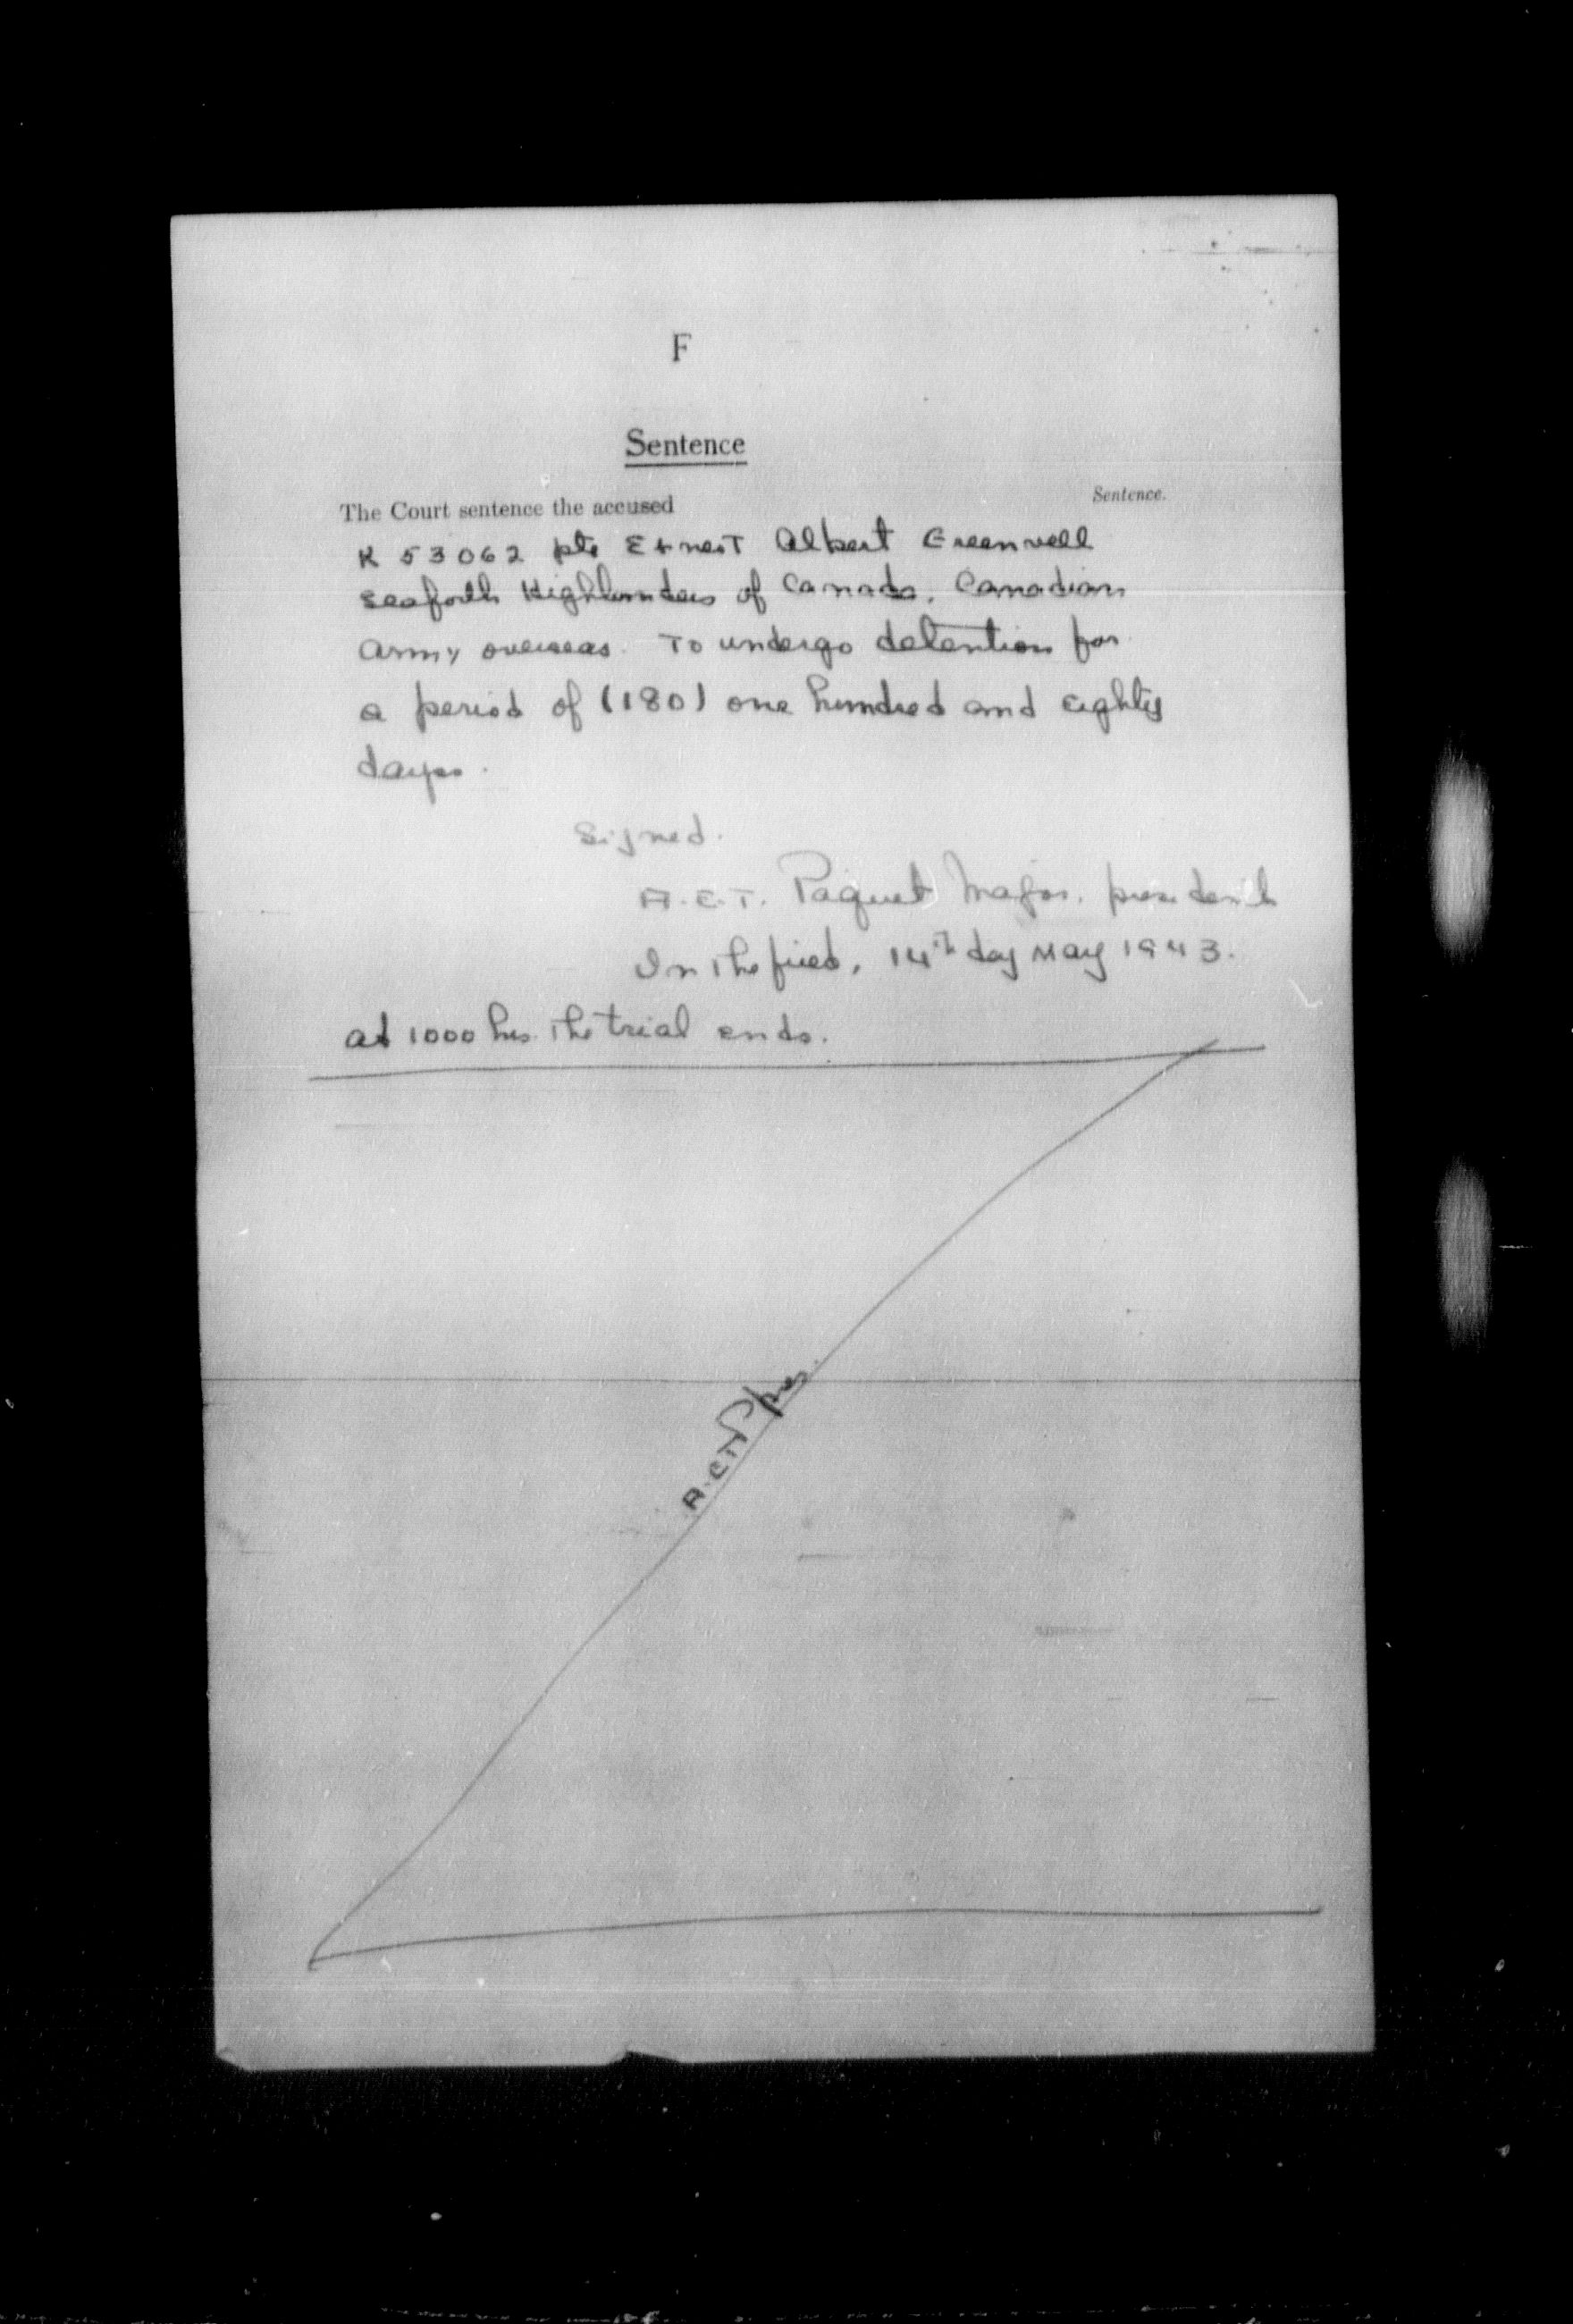 F
Sentence
The Court sentence the accused
Sentence.
K 53062 pte Ernest Albert Greenwell
Seaforth Highlanders of Canada, Canadian
Army overseas. To undergo detention for
a period of (180) one hundred and eighty
days.
Signed.
A.E.T. Paquet Major. president
In the field, 14th day May 1943.
at 1000 hrs. The trial ends.
A.E.T.P. pres.